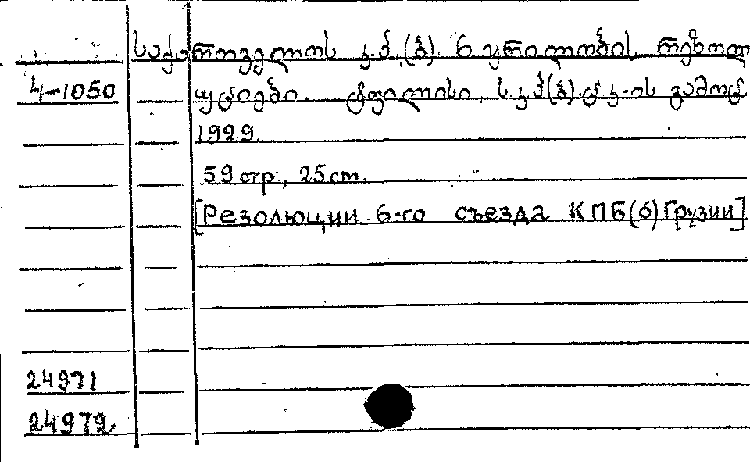 საქართველოს კ.პ.(ბ). 6 ყრილობის რეზოლ
4-1050
უციები. ტფილისი, ს.კ.პ(ბ).ც.კ-ის გამოც
1929.
59 стр, 25 cm.
[Резолюции 6-го съезда КПБ(б) Грузии]
24971
24972.